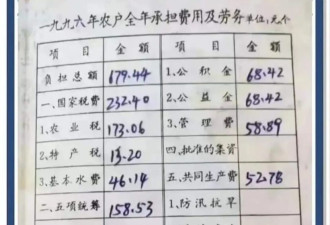 一九九六年农户全年承担费用及劳务单位:元个
项目 金额 项目 金额
负担总额 679.44 1.公积金 68.42
一.国家税费 232.40 2.公益金 68.42
1.农业税 173.06 3.管理费 58.89
2.特产税 13.20 四.批准的集资
3.基本水费 46.14 五.共同生产费 52.78
二.五项统筹 158.53 1.防汛抗旱